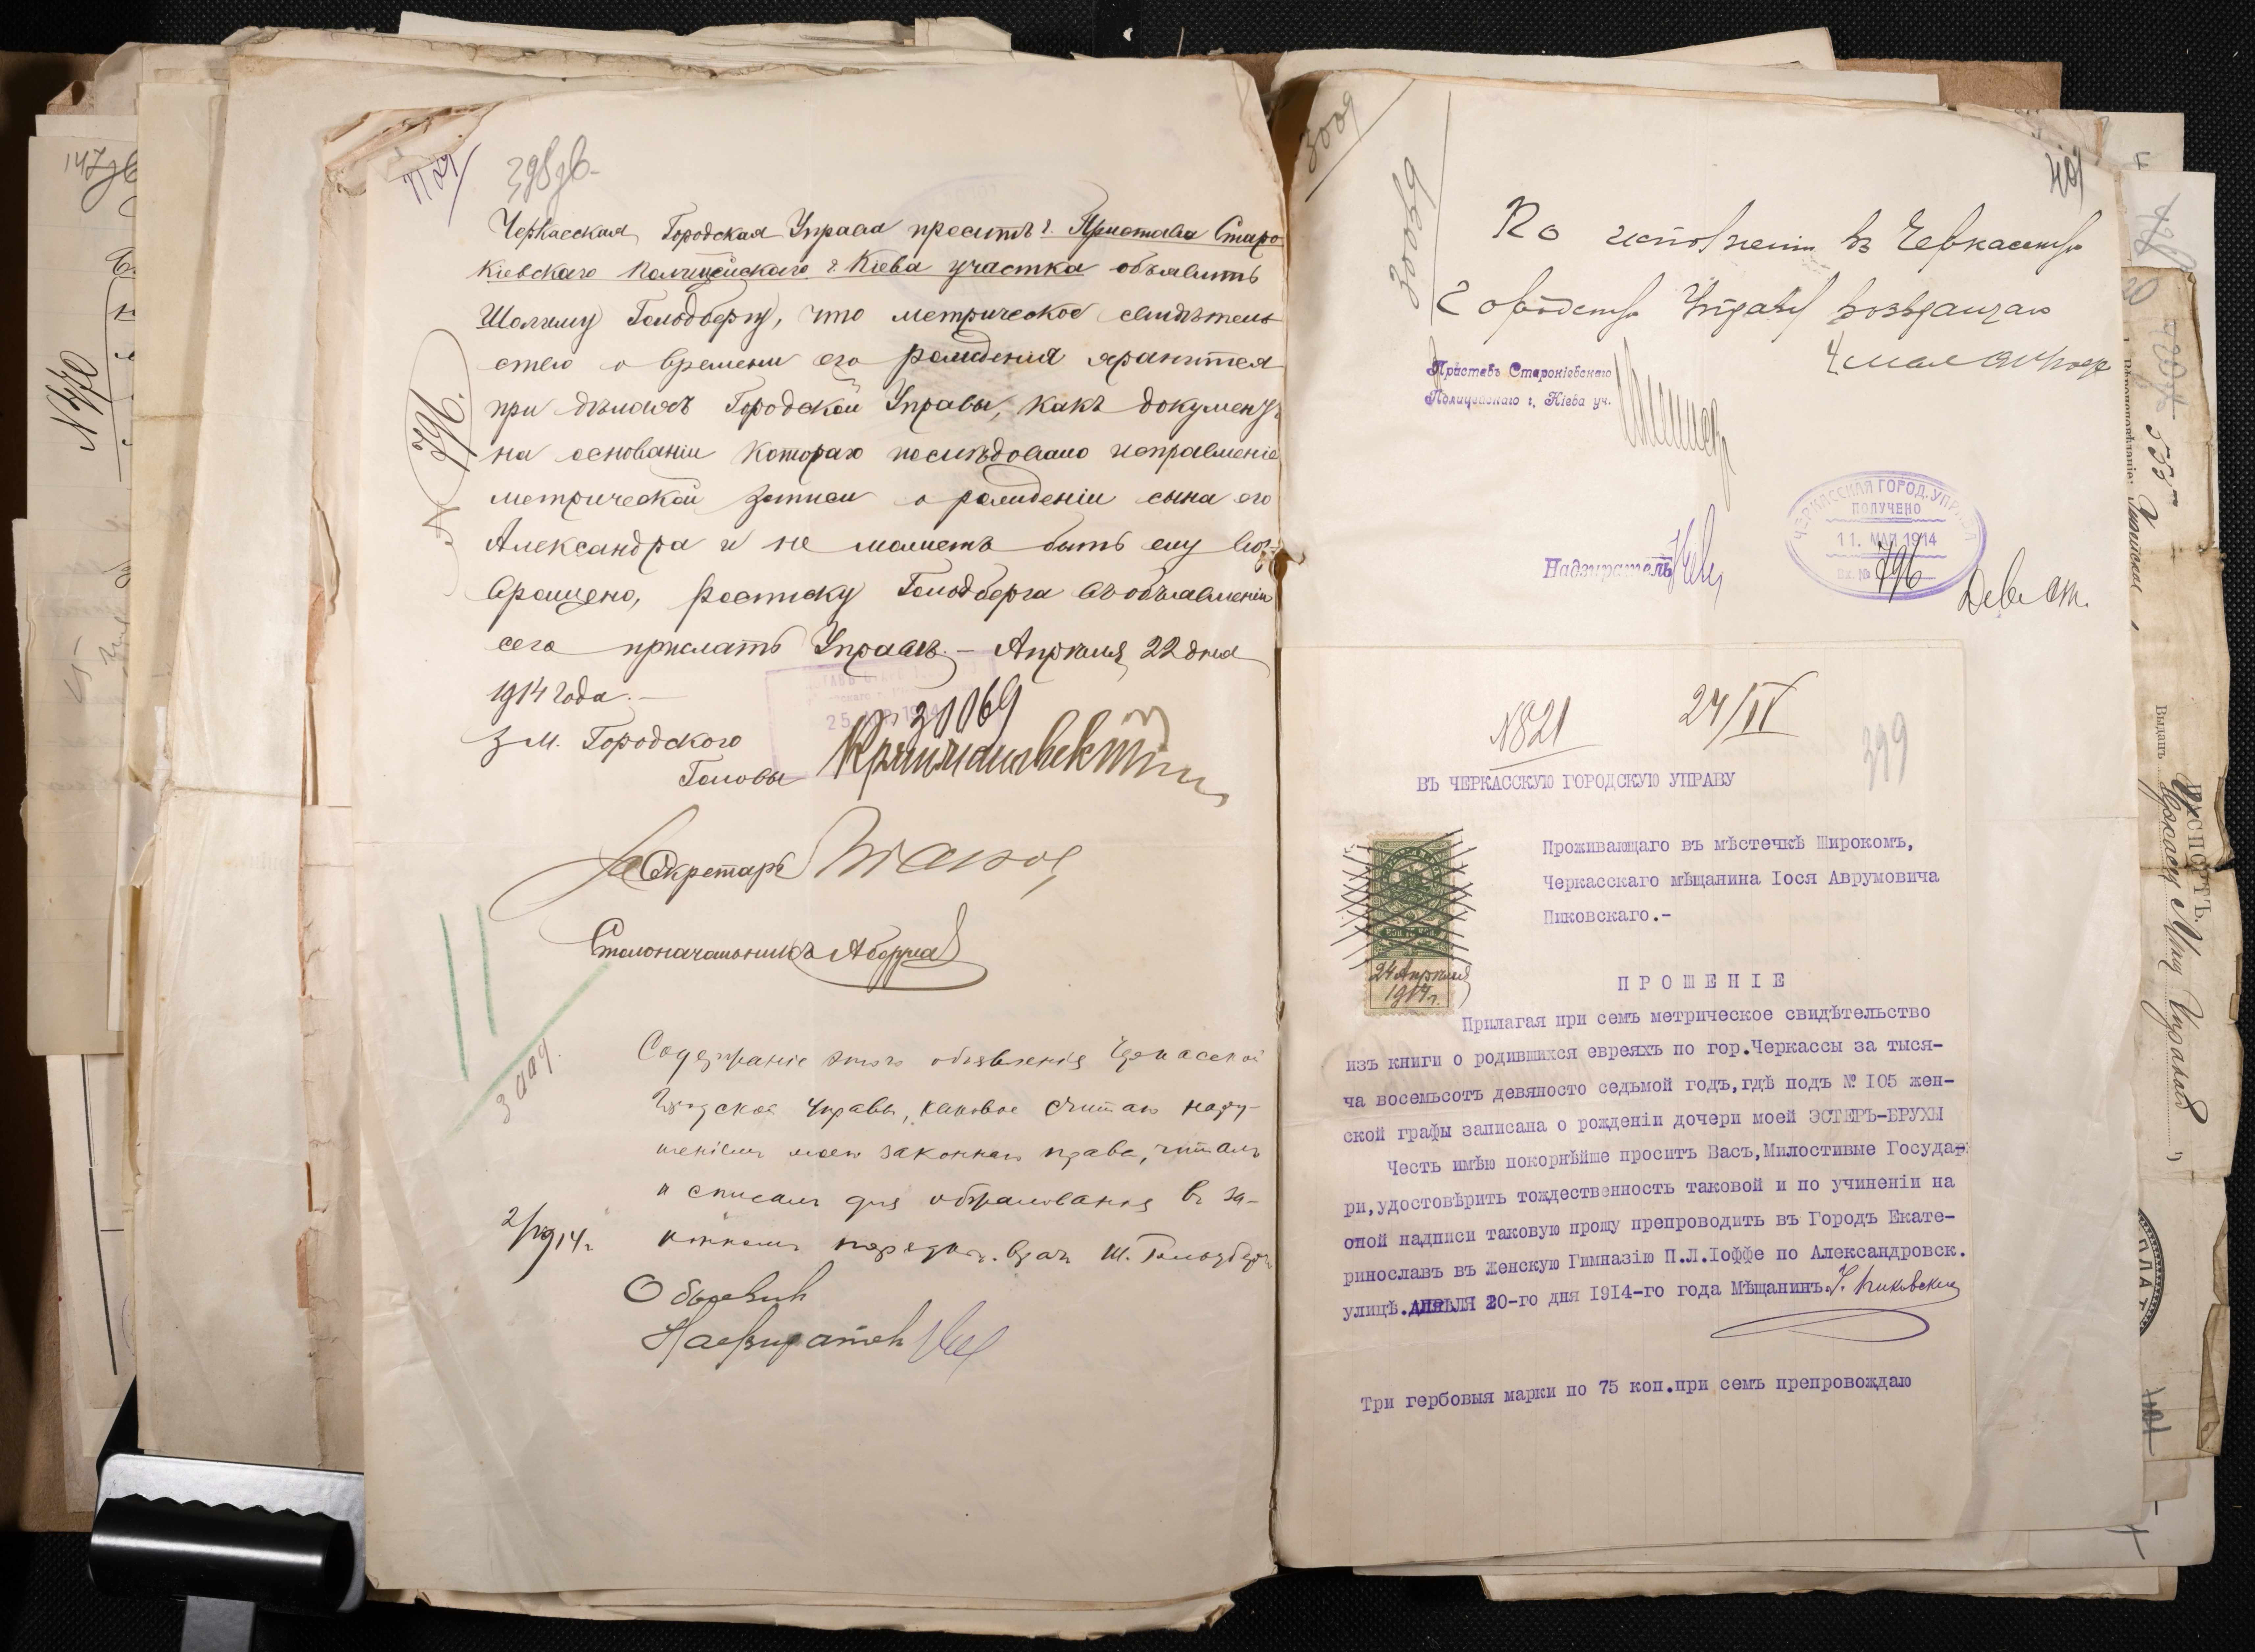 398 об.
Черкасская Городская Управа проситъ г. Пристава Старо
Кіевскаго полицейскаго г. Кіева участка объявить
Шолиму Гольдбергу, что метрическое свидѣтель
ство о времени его рожденія хранится
при дѣлахъ Городской Управы, какъ документъ
на основаніи котораго послѣдовало исправленіе
метрической записи о рожденіи сына его
Александра и не можетъ быть ему воз-
вращено, росписку Гольдберга въ объявленіи
сего прислать Управѣ. – Апрѣля 22 дня
1914 года. –
№ 796.
25 АПР 1914
31069
Зм. Городского
Головы
Секретарь
Столоначальникъ
Содержаніе этого объявленія Черкасской
Городской Управы, каковое считаю нару-
шеніемъ моего законнаго права, читалъ
и списалъ для обжалованія въ за-
конномъ порядкѣ. Врачъ Ш. Гольдбергъ
2/V 1914 г.
Объявилъ
Надзиратель
3009
30089
401
По исполненіи въ Черкасскую
Городскую Управу возвращаю
4 мая 1914 года
Приставъ Старокіевскаго
Полицейскаго г. Кіева уч.
Надзиратель
ЧЕРКАССКАЯ ГОРОД. УПРАВА
ПОЛУЧЕНО
11. МАЙ 1914
Вх. №
796
№ 821
24/IV
399
ВЪ ЧЕРКАССКУЮ ГОРОДСКУЮ УПРАВУ
Проживающаго въ мѣстечкѣ Широкомъ,
Черкасскаго мѣщанина Іося Аврумовича
Пиковскаго.-
24 Апрѣля
1914 г.
ПРОШЕНІЕ
Прилагая при семъ метрическое свидѣтельство
изъ книги о родившихся евреяхъ по гор.Черкассы за тыся-
ча восемьсотъ девяносто седьмой годъ,гдѣ подъ № 105 жен-
ской графы записана о рожденіи дочери моей ЭСТЕРЪ-БРУХЫ
Честь имѣю покорнѣйше просить Васъ,Милостивые Государ-
ри,удостовѣрить тождественность таковой и по учиненіи на
оной надписи таковую прошу препроводить въ Городъ Екате-
ринославъ въ женскую Гимназію П.Л.Іоффе по Александровск.
улицѣ.АПРѢЛЯ 20-го дня 1914-го года Мѣщанинъ.І. Пиковскій
Три гербовыя марки по 75 коп.при семъ препровождаю
147 об
N 770
Вѣроисповѣданіе:
Выданъ
ПАСПОРТЪ.